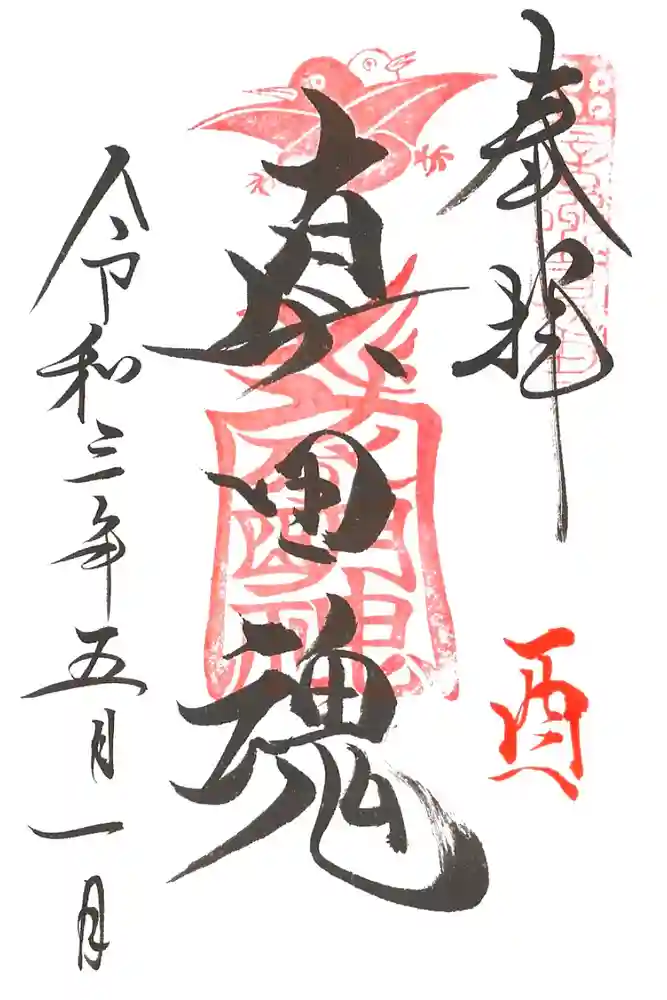 奉拝
酉
真田魂
令和三年五月一日